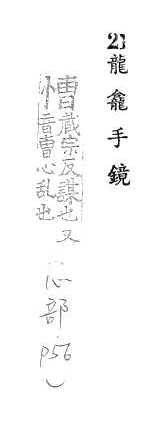 23 龍龕手鏡
慒藏宗反謀也又
音曹心乱也
(心部 p56)